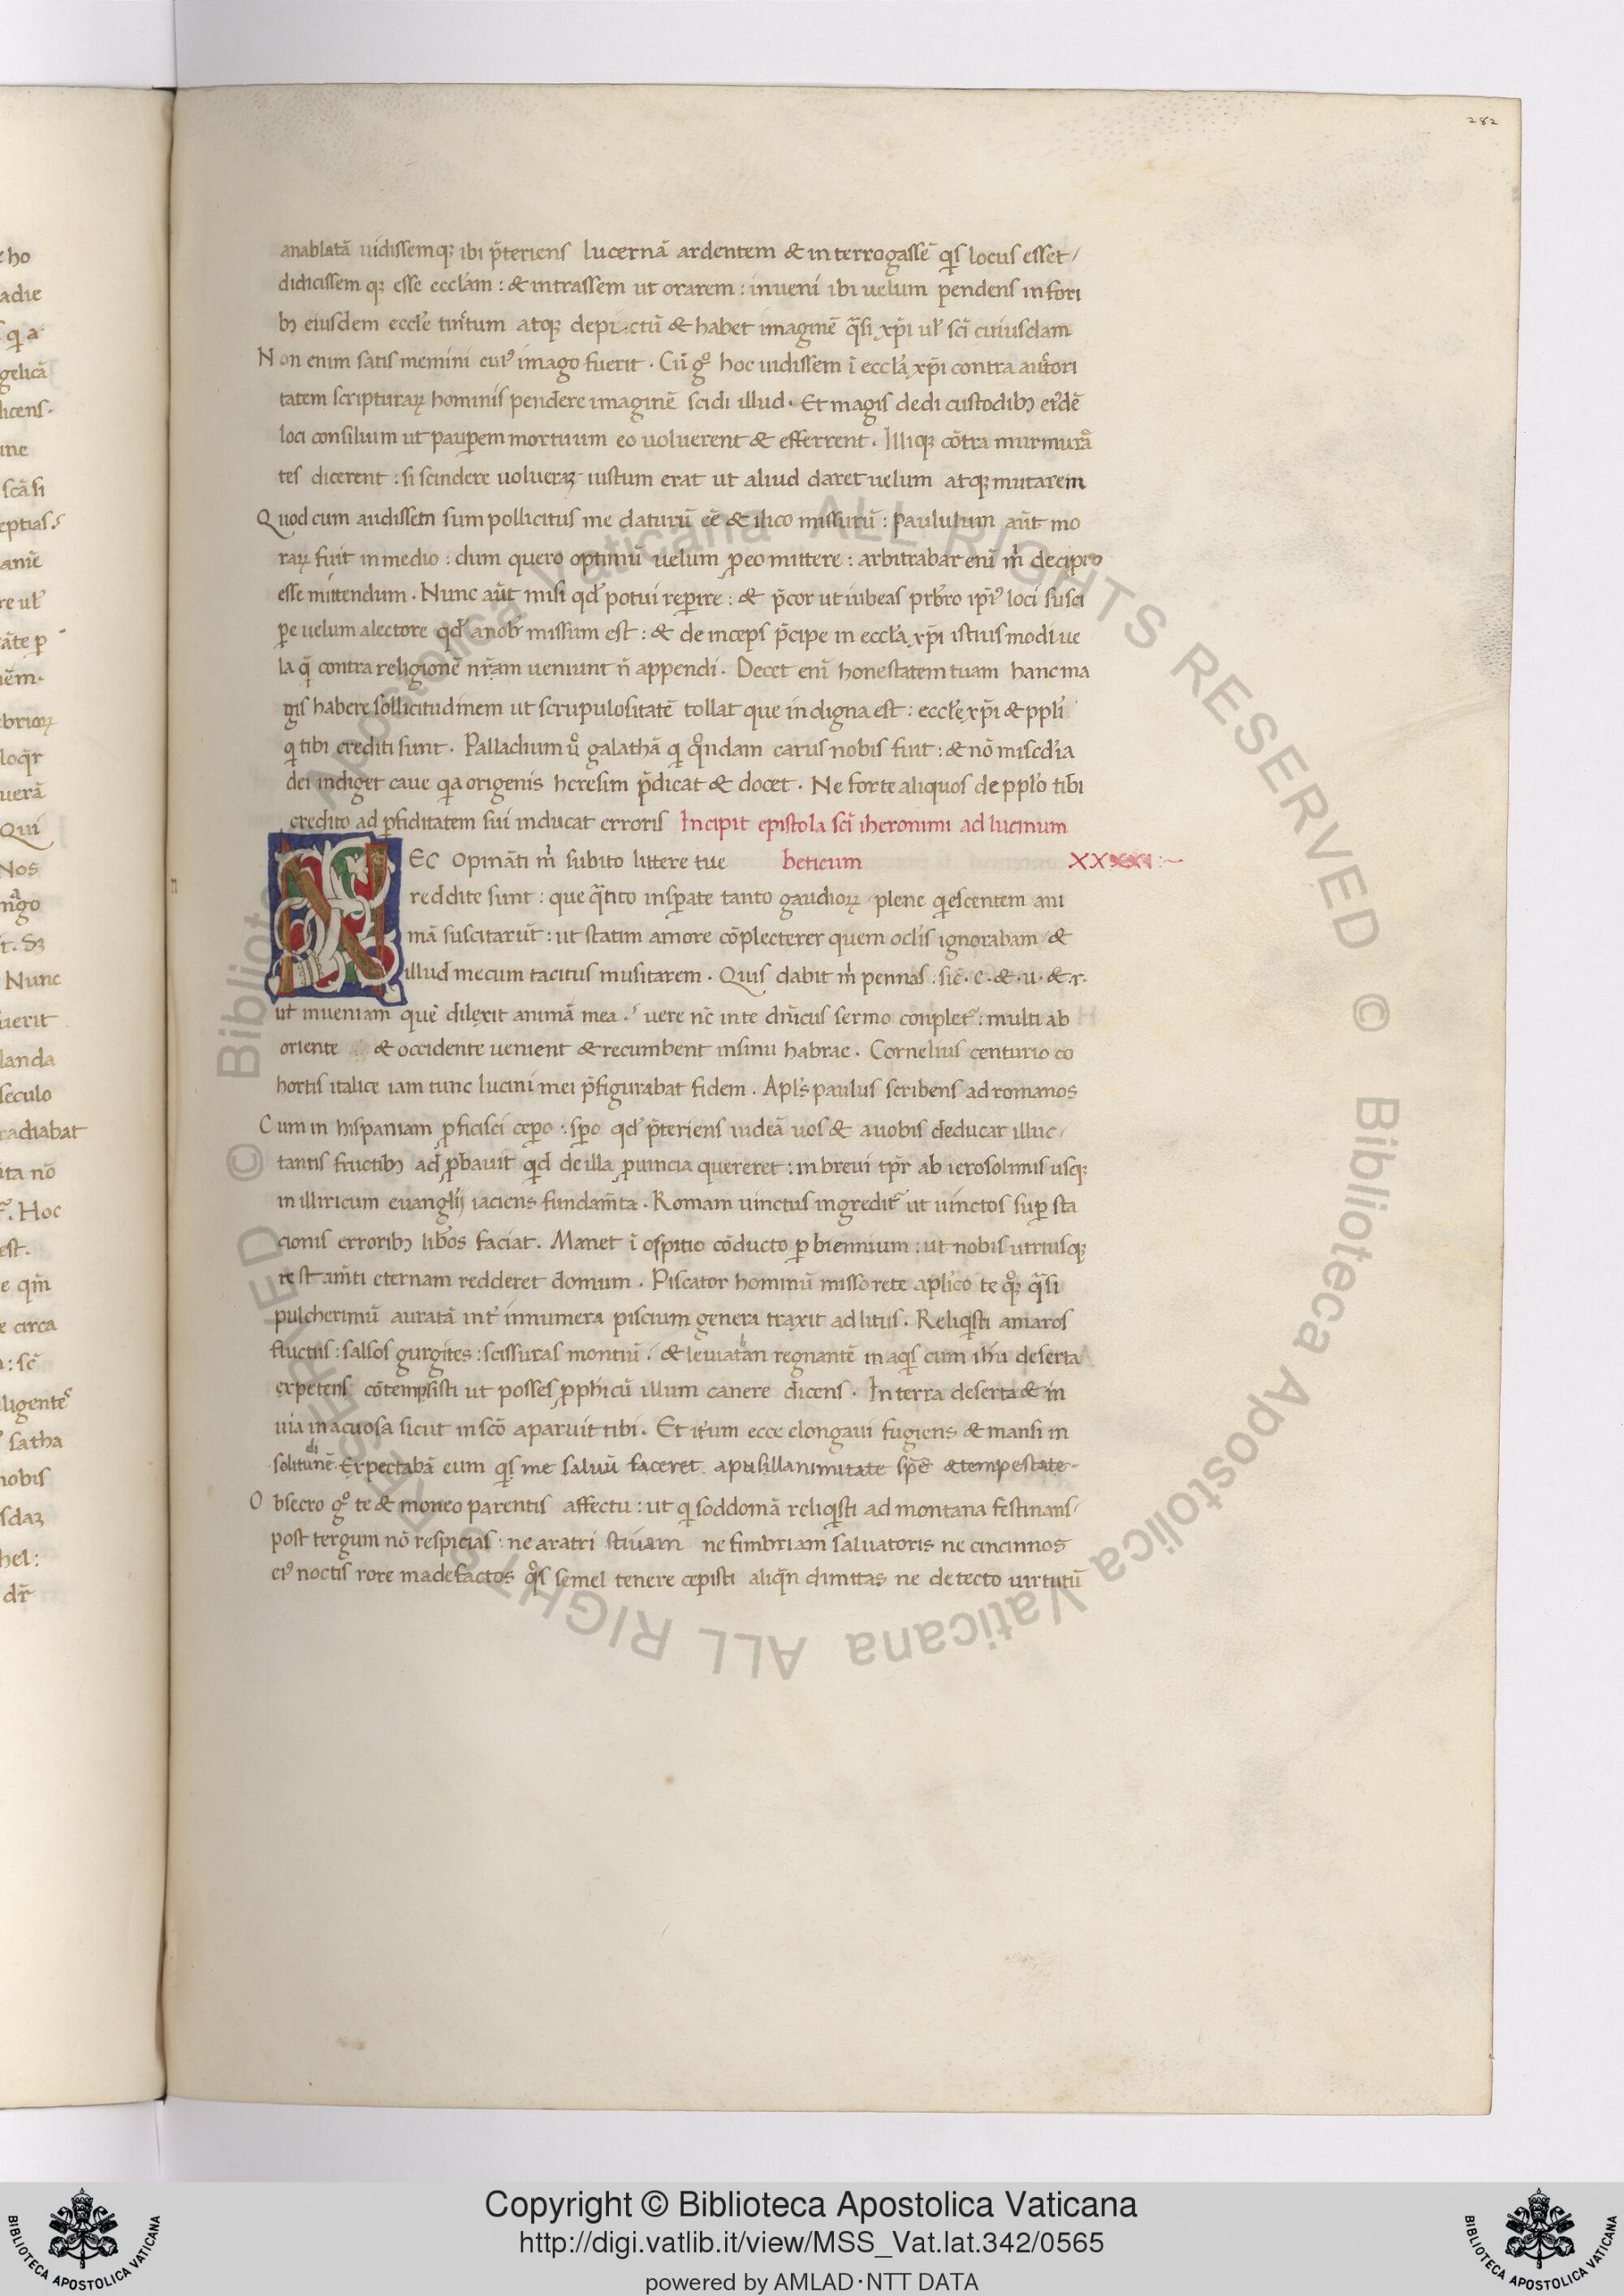 282
anablatā uidissemqꝫ ibi p̄teriens lucernā ardentem & interrogassē qis locus esset /
didicissem qꝫ esse eccłam : & intrassem ut orarem : inueni ibi uelum pendens in fori
bꝫ eiusdem eccłe tinctum atqꝫ depictū & habet imaginē qasi xp̄i ul' sc̄i cuiusdam
Non enim satis memini cui' imago fuerit . Cū go hoc uidissem ī eccła xp̄i contra auctori
tatem scripturaꝝ hominis pendere imaginē scidi illud . Et magis dedi custodibꝫ ei'dē
loci consilium ut pauꝑem mortuum eo uoluerent & efferrent . Illiqꝫ cōtra murmurā
tes dicerent : si scindere uolueraꝫ iustum erat ut aliud daret uelum atqꝫ mutarem
Quod cum audissem sum pollicitus me daturū eē & ilico missurū : paululum aūt mo
raꝝ fuit in medio : dum quero optimū uelum ꝑ eo mittere : arbitrabar enī m̄ de cipro
esse mittendum . Nunc aūt misi qd' potui reꝑire : & p̄cor ut iubeas prb̄ro ipī' loci susci
ꝑe uelum alectore qd' anob' missum est : & de inceps p̄cipe in eccła xp̄i istius modi ue
la q̄ contra religionē nr̄am ueniunt n̄ appendi . Decet enī honestatem tuam hanc ma
gis habere sollicitudinem ut scrupulositatē tollat que indigna est : eccłe xp̄i & ppłi
qi tibi crediti sunt . Palladium uo galathā qi qondam carus nobis fuit : & nō misc̄dia
dei indiget caue qia origenis heresim p̄dicat & docet . Ne forte aliquos de ppło tibi
credito ad ꝑfiditatem sui inducat erroris Incipit epistola sc̄i iheronimi ad lucinum
NEC Opināti m̄ subito littere tue beticum XXXXI :~
reddite sunt : que qato insꝑate tanto gaudioꝝ plene qiescentem ani
mā suscitarūt : ut statim amore cōplecterer quem oclis ignorabam / &
illud mecum tacitus musitarem . Quis dabit m̄ pennas : sic̄ . c . & . u . & . r .
ut inueniam quē dilexit animā mea . uere nc̄ in te dn̄icus sermo conplet' : multi ab
oriente & occidente uenient & recumbent in sinu habrae . Cornelius centurio co
hortis italice iam tunc lucini mei p̄figurabat fidem . Apl's paulus scribens ad romanos
Cum in hispaniam ꝓficisci ceꝑo : sꝑo qd' p̄teriens uideā uos & a uobis deducar illuc /
tantis fructibꝫ ad ꝓbauit qid de illa ꝓuincia quereret : in breui tpr̄ ab ierosolimis usqꝫ
in illiricum euanglij iaciens fundam̄ta . Romam uinctus ingredit' ut uinctos suꝑ sta
cionis erroribꝫ lib'os faciat . Manet ī ospitio cōducto ꝑ biennium : ut nobis utriusqꝫ
restam̄ti eternam redderet domum . Piscator hominū misso rete aplico te qoꝫ qasi
pulcherimū auratā int' innumera piscium genera traxit ad litus . Reliqisti amaros
fluctus : salsos gurgites : scissuras montiū . & leuiatan regnantē in aqis cum ihū deserta
expetens cōtempsisti ut posses ꝓphicū illum canere dicens . In terra deserta & in
uia inacuosa sicut in scō aparuit tibi . Et it'um ecce elongaui fugiens & mansi in
solitudinē . Expectabā eum qis me saluū faceret apusillanimitate spē & tempestate .
Obsecro go te & moneo parentis affectu : ut qi soddomā reliqisti ad montana festinans /
post tergum nō respicias : ne aratri stiuam ne fimbriam saluatoris ne cincinnos
ei' noctis rore madefactos qos semel tenere cepisti aliqn̄ dimittas ne de tecto uirtutū
Copyright © Biblioteca Apostolica Vaticana
http://digi.vatlib.it/view/MSS_Vat.lat.342/0565
powered by AMLAD·NTT DATA